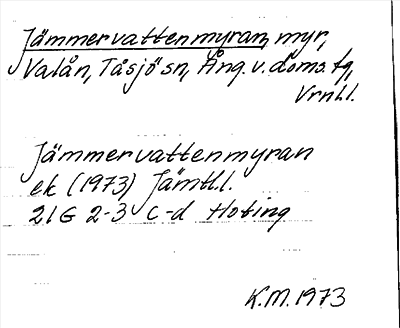 Jämmervattenmyran, myr,
Valån, Tåsjö sn, Ång. v. doms. fg,
Vrnl.l.
Jämmervattenmyran
ek (1973) Jämtl.l.
21G 2-3 c-d Hoting
K.M. 1973